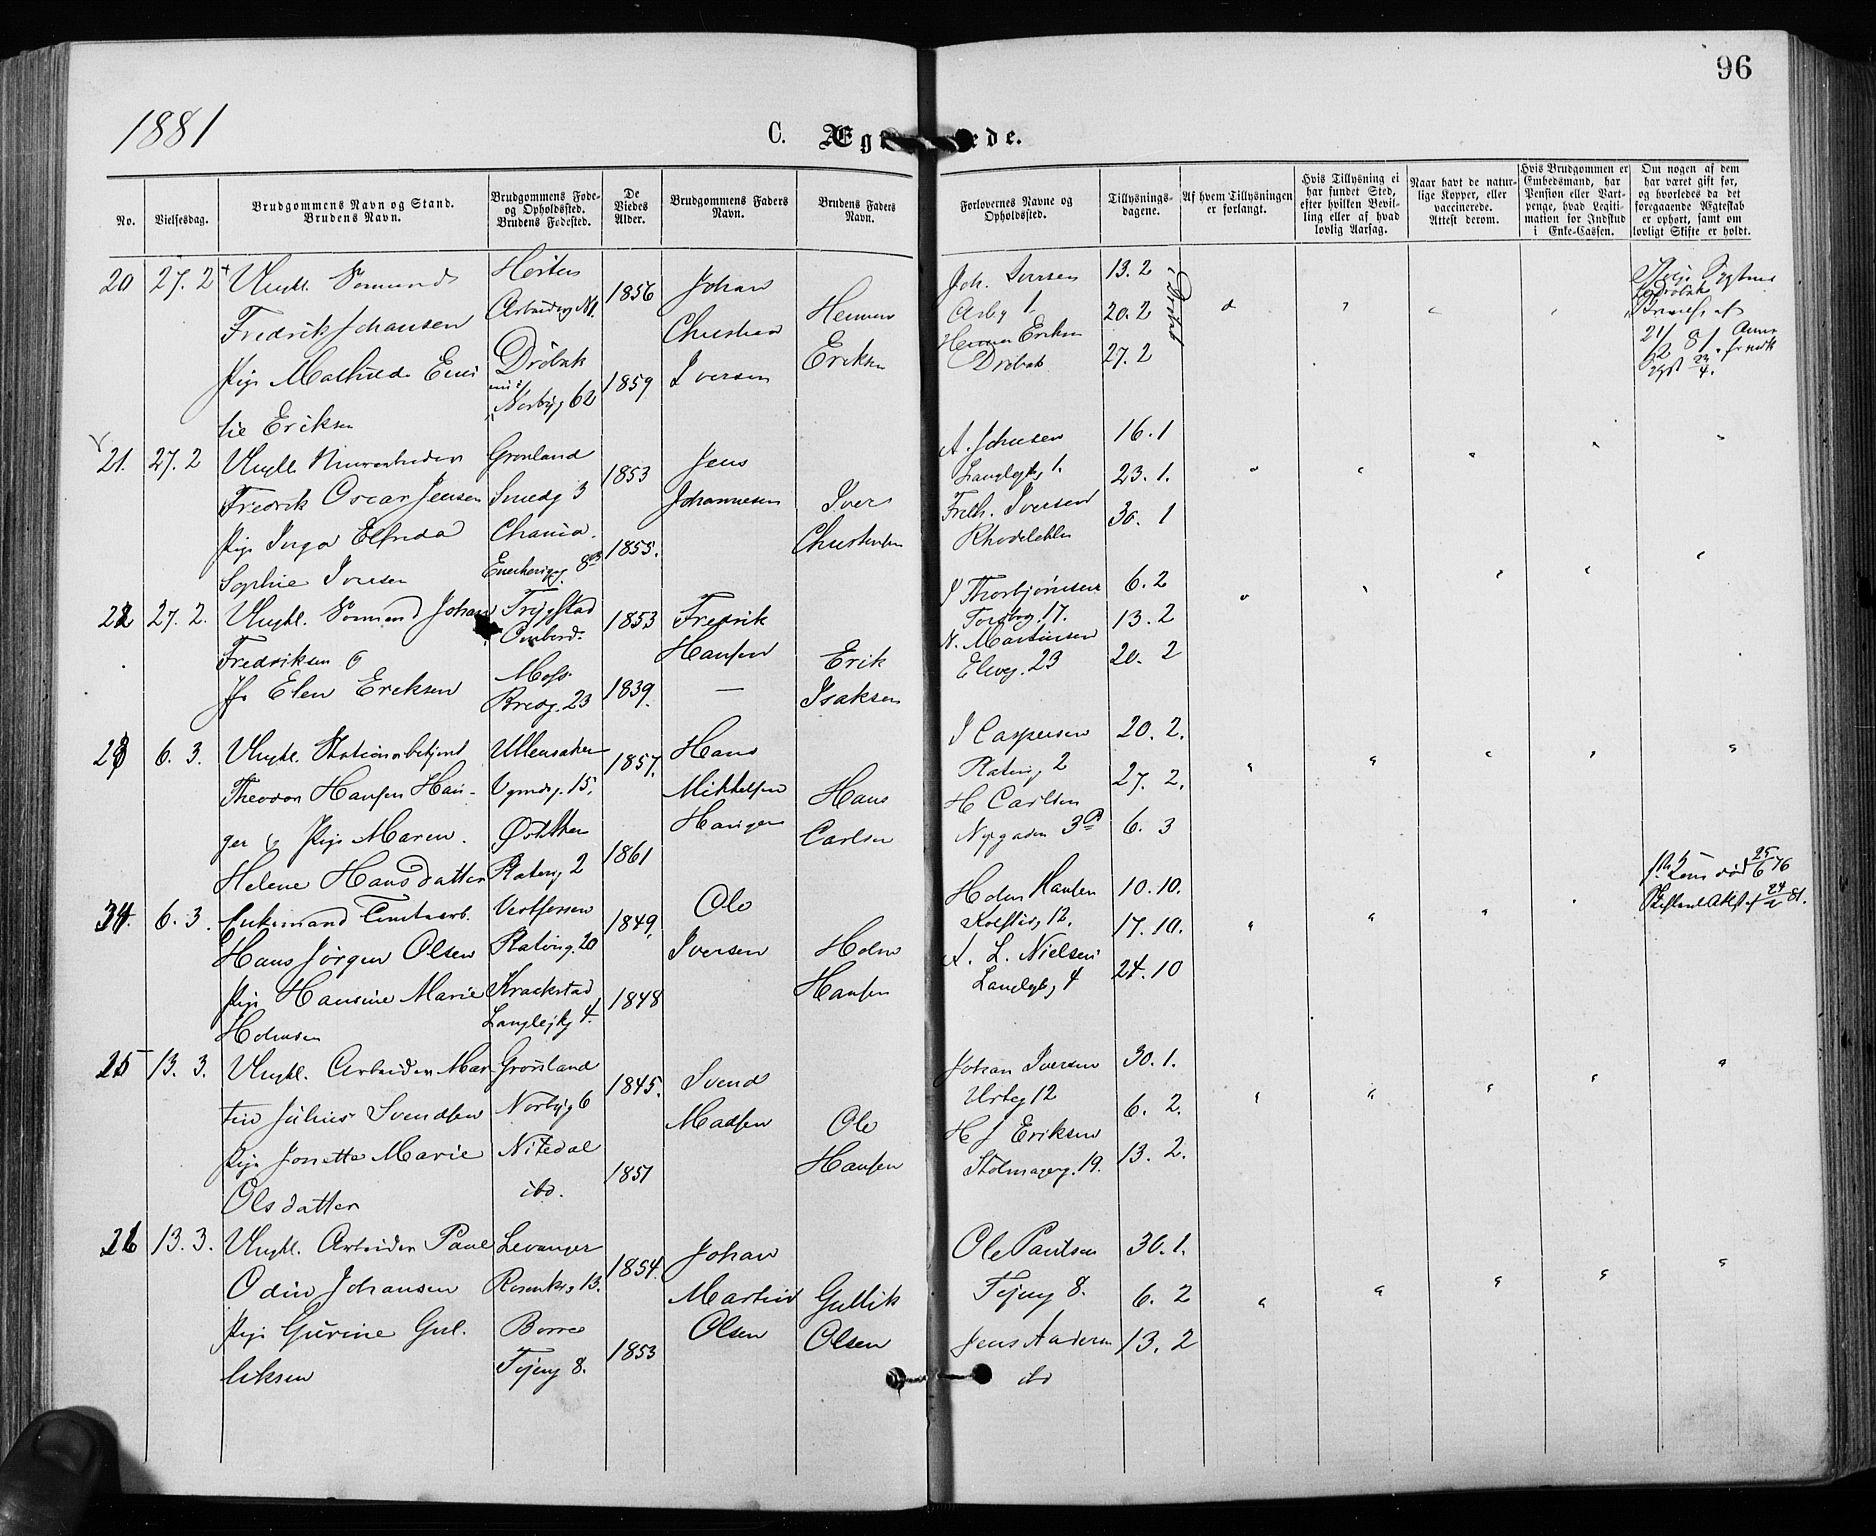 96
1881
C. Æg ede.
No.
Vielsesdag.
Brudgommens Navn og Stand.
Brudens Navn.
Brudgommens Føde-
og Opholdssted.
Brudens Fødested.
De
Viedes
Alder.
Brudgommens Faders
Navn.
Brudens Faders
Navn.
Forlovernes Navne og
Opholdssted.
Tillysnings-
dagene.
Af hvem Tillysningen
er forlangt.
Hvis Tillysning ei
har fundet Sted,
efter hvilken Bevil-
ling eller af hvad
lovlig Aarsag.
Naar havt de natur-
lige Kopper, eller
vaccinerede.
Attest derom.
Hvis Brudgommen er
Embedsmand, har
Pension eller Vart-
penge, hvad Legiti-
mation for Indskud
i Enke-Cassen.
Om nogen af dem
har været gift før,
og hvorledes da det
foregaaende Ægteskab
er ophørt, samt om
lovligt Skifte er holdt.
20 27. 2 Ungkl. Sømand
Fredrik Johansen
Pige Mathilde Emi
lie Eriksen
Horten
Drøbak
Norbyg 62
1856
1859
Johan
Christian
Iversen
Herman
Eriksen
Joh. Iversen
Herman Eriksen
Drøbak
13. 2
20. 2
27. 2
Drøbak
21. 27. 2 Ungkl. Murarbeider
Fredrik Oscar Jensen
Pige Inga Elfrida
Sophie Iversen
Grønland
Smedg 3
Chania.
1853
1855.
Jens
Johannesen
Iver
Christensen
A. Johnsen
Langleikg 1.
Fredh. Iversen
16. 1
23. 1.
30. 1
22 27. 2. Ungkl. Sømand Johan
Fredriksen og
Elen Eriksen
Trygstad
Ombord.
Moss
Bredg. 23
1853
1839.
Fredrik
Hansen
—
Erik
Isaksen
J Thorbjørnsen
Torvbg. 17.
N. Martinsen
Elveg. 23
6. 2
13. 2
20. 2
23 6. 3. Ungkl. Stationsbetjent
Theodor Hansen Hau-
ger og Pige Maren
Helene Hansdatter
Ullensaker
15.
Platoug 2
1857.
1861
Hans
Mikkelsen
Hauger
Hans
Carlsen
J Caspersen
Platoug 2
H Carlsen
Nygaden 3
20. 2.
27. 2.
6. 3
24. 6. 3. Enkemand Tomtearb.
Hans Jørgen Olsen
Pige Hansine Marie
Holmsen
Vestfossen
Platoug. 20
Kraakstad
Langleikg 4.
1849.
1848
Ole
Iversen
Holm
Hansen
Holm Hansen
Kolstadg 12.
A. L. Nielsen
Langleikg 4
10. 10.
17. 10.
24. 10
25 13. 3. Ungkl. Arbeider Mar
tin Julius Svendsen
Pige Jonette Marie
Olsdatter
Grønland
Norbyg 6
Nitedal
ibd.
1845.
1851
Svend
Madsen
Ole
Hansen
Johan Iversen
Urteg 12
H J Eriksen
Stolmagerg. 19.
30. 1.
6. 2.
13. 2.
26 13. 3. Ungkl. Arbeider Paul
Odin Johansen
Pige Gurine Gul-
liksen
Levanger
Rosenkrg 13.
Borre
Tøieng 8.
1854.
1853
Johan
Martin
Olsen
Gullik
Olsen
Ole Paulsen
Tøieng 8.
Jens Andersen
ibd
30. 1.
6. 2
13. 2